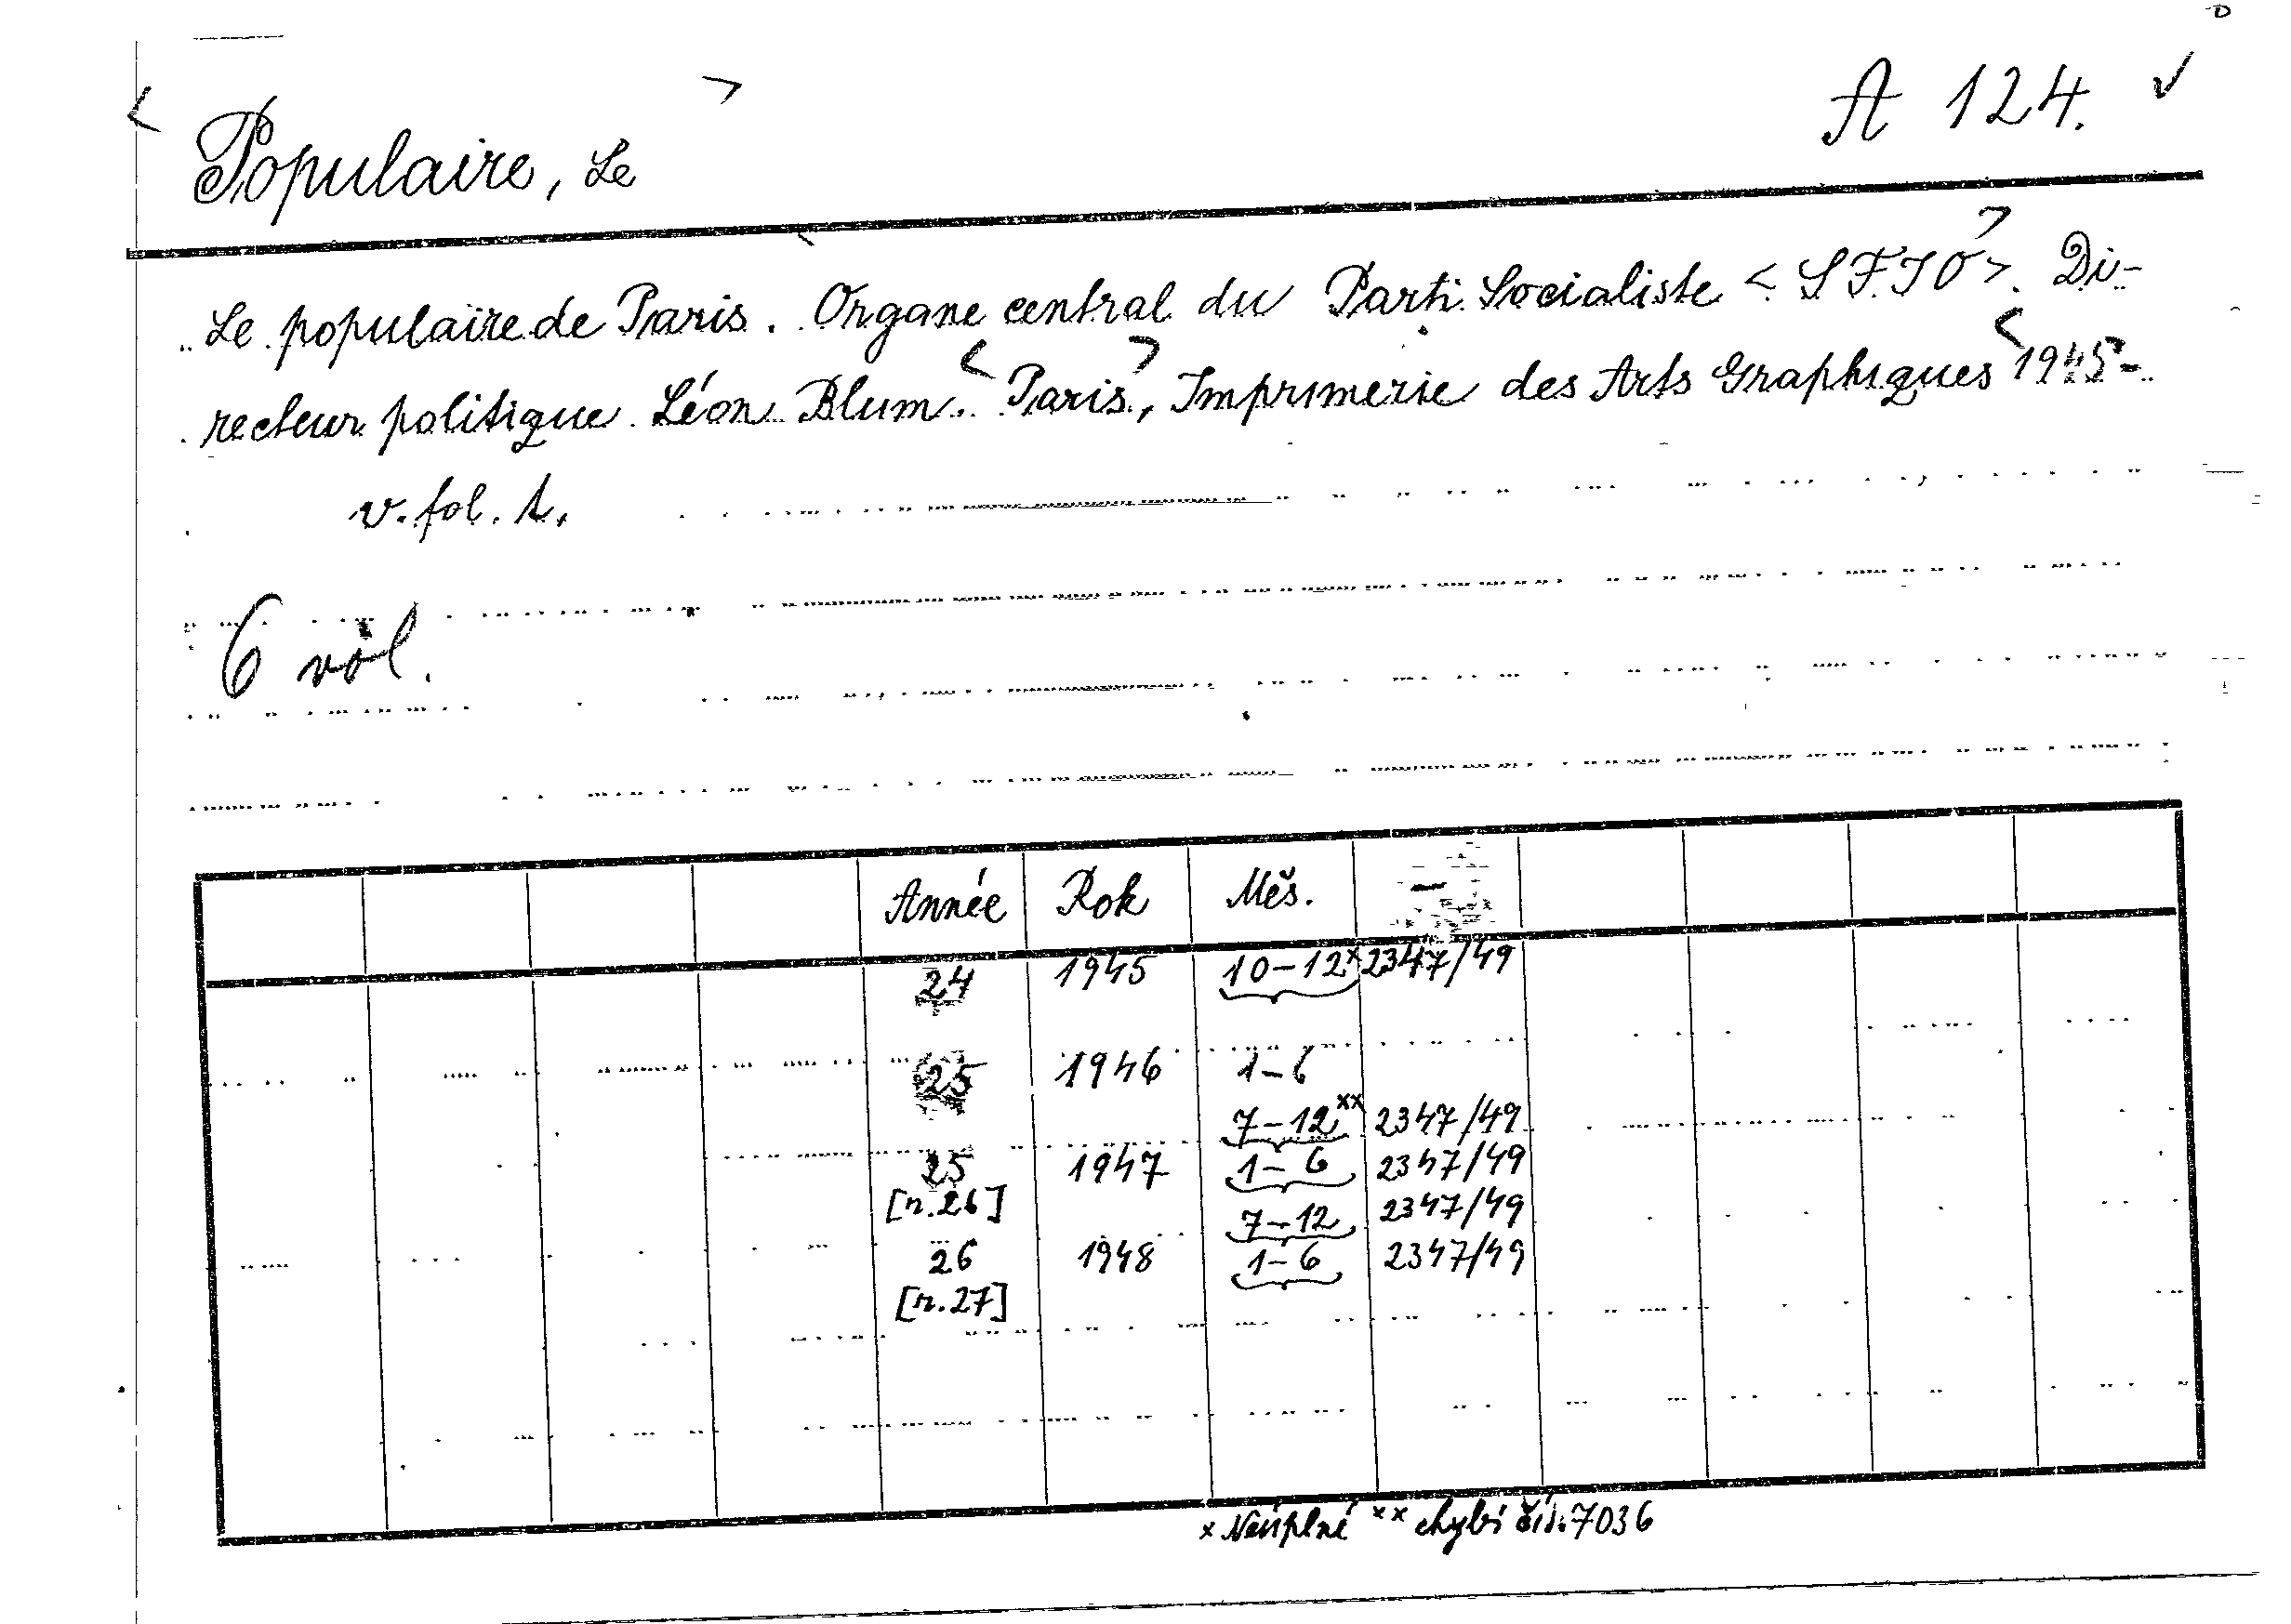 < Populaire, Le > A 124. ✓
Le populaire de Paris. Organe central du Parti Socialiste < SFIO >. Di-
recteur politique Léon Blum. <Paris>, Imprimerie des Arts Graphiques <1945-
v. fol. t.
6 vol.
Année Rok Měs.
24 1945 10-12x 2347/49
25 1946 1-6
7-12xx 2347/49
25 1947 1-6 2347/49
[r. 26] 7-12 2347/49
26 1948 1-6 2347/49
[r. 27]
x Neúplné xx chybí čís. 7036